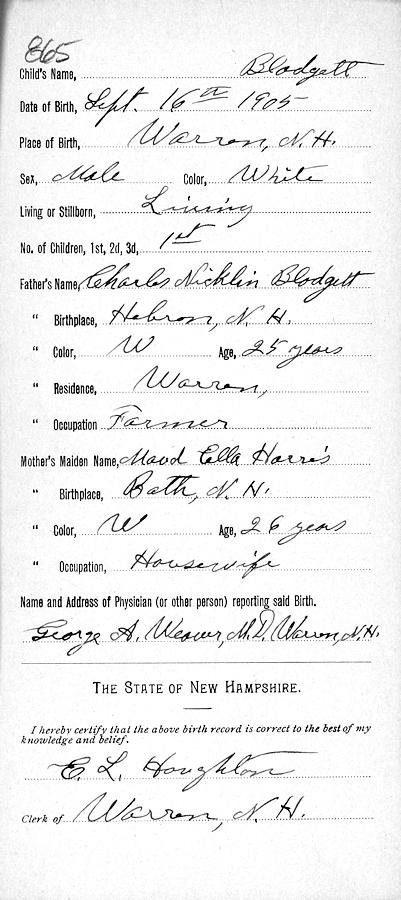 865
Child's Name, Blodgett
Date of Birth, Sept. 16th 1905
Place of Birth, Warren, N.H.
Sex, Male Color, White
Living or Stillborn, Living
No. of Children, 1st, 2d, 3d, 1st
Father's Name, Charles Nicklin Blodgett
" Birthplace, Hebron, N.H.
" Color, W Age, 25 years
" Residence, Warren,
" Occupation Farmer
Mother's Maiden Name, Maud Ella Harris
" Birthplace, Bath, N.H.
" Color, W Age, 26 years
" Occupation, Housewife
Name and Address of Physician (or other person) reporting said Birth.
George A. Weaver, M.D. Warren, N.H.
THE STATE OF NEW HAMPSHIRE.
I hereby certify that the above birth record is correct to the best of my
knowledge and belief.
E. L. Houghton
Clerk of Warren, N.H.